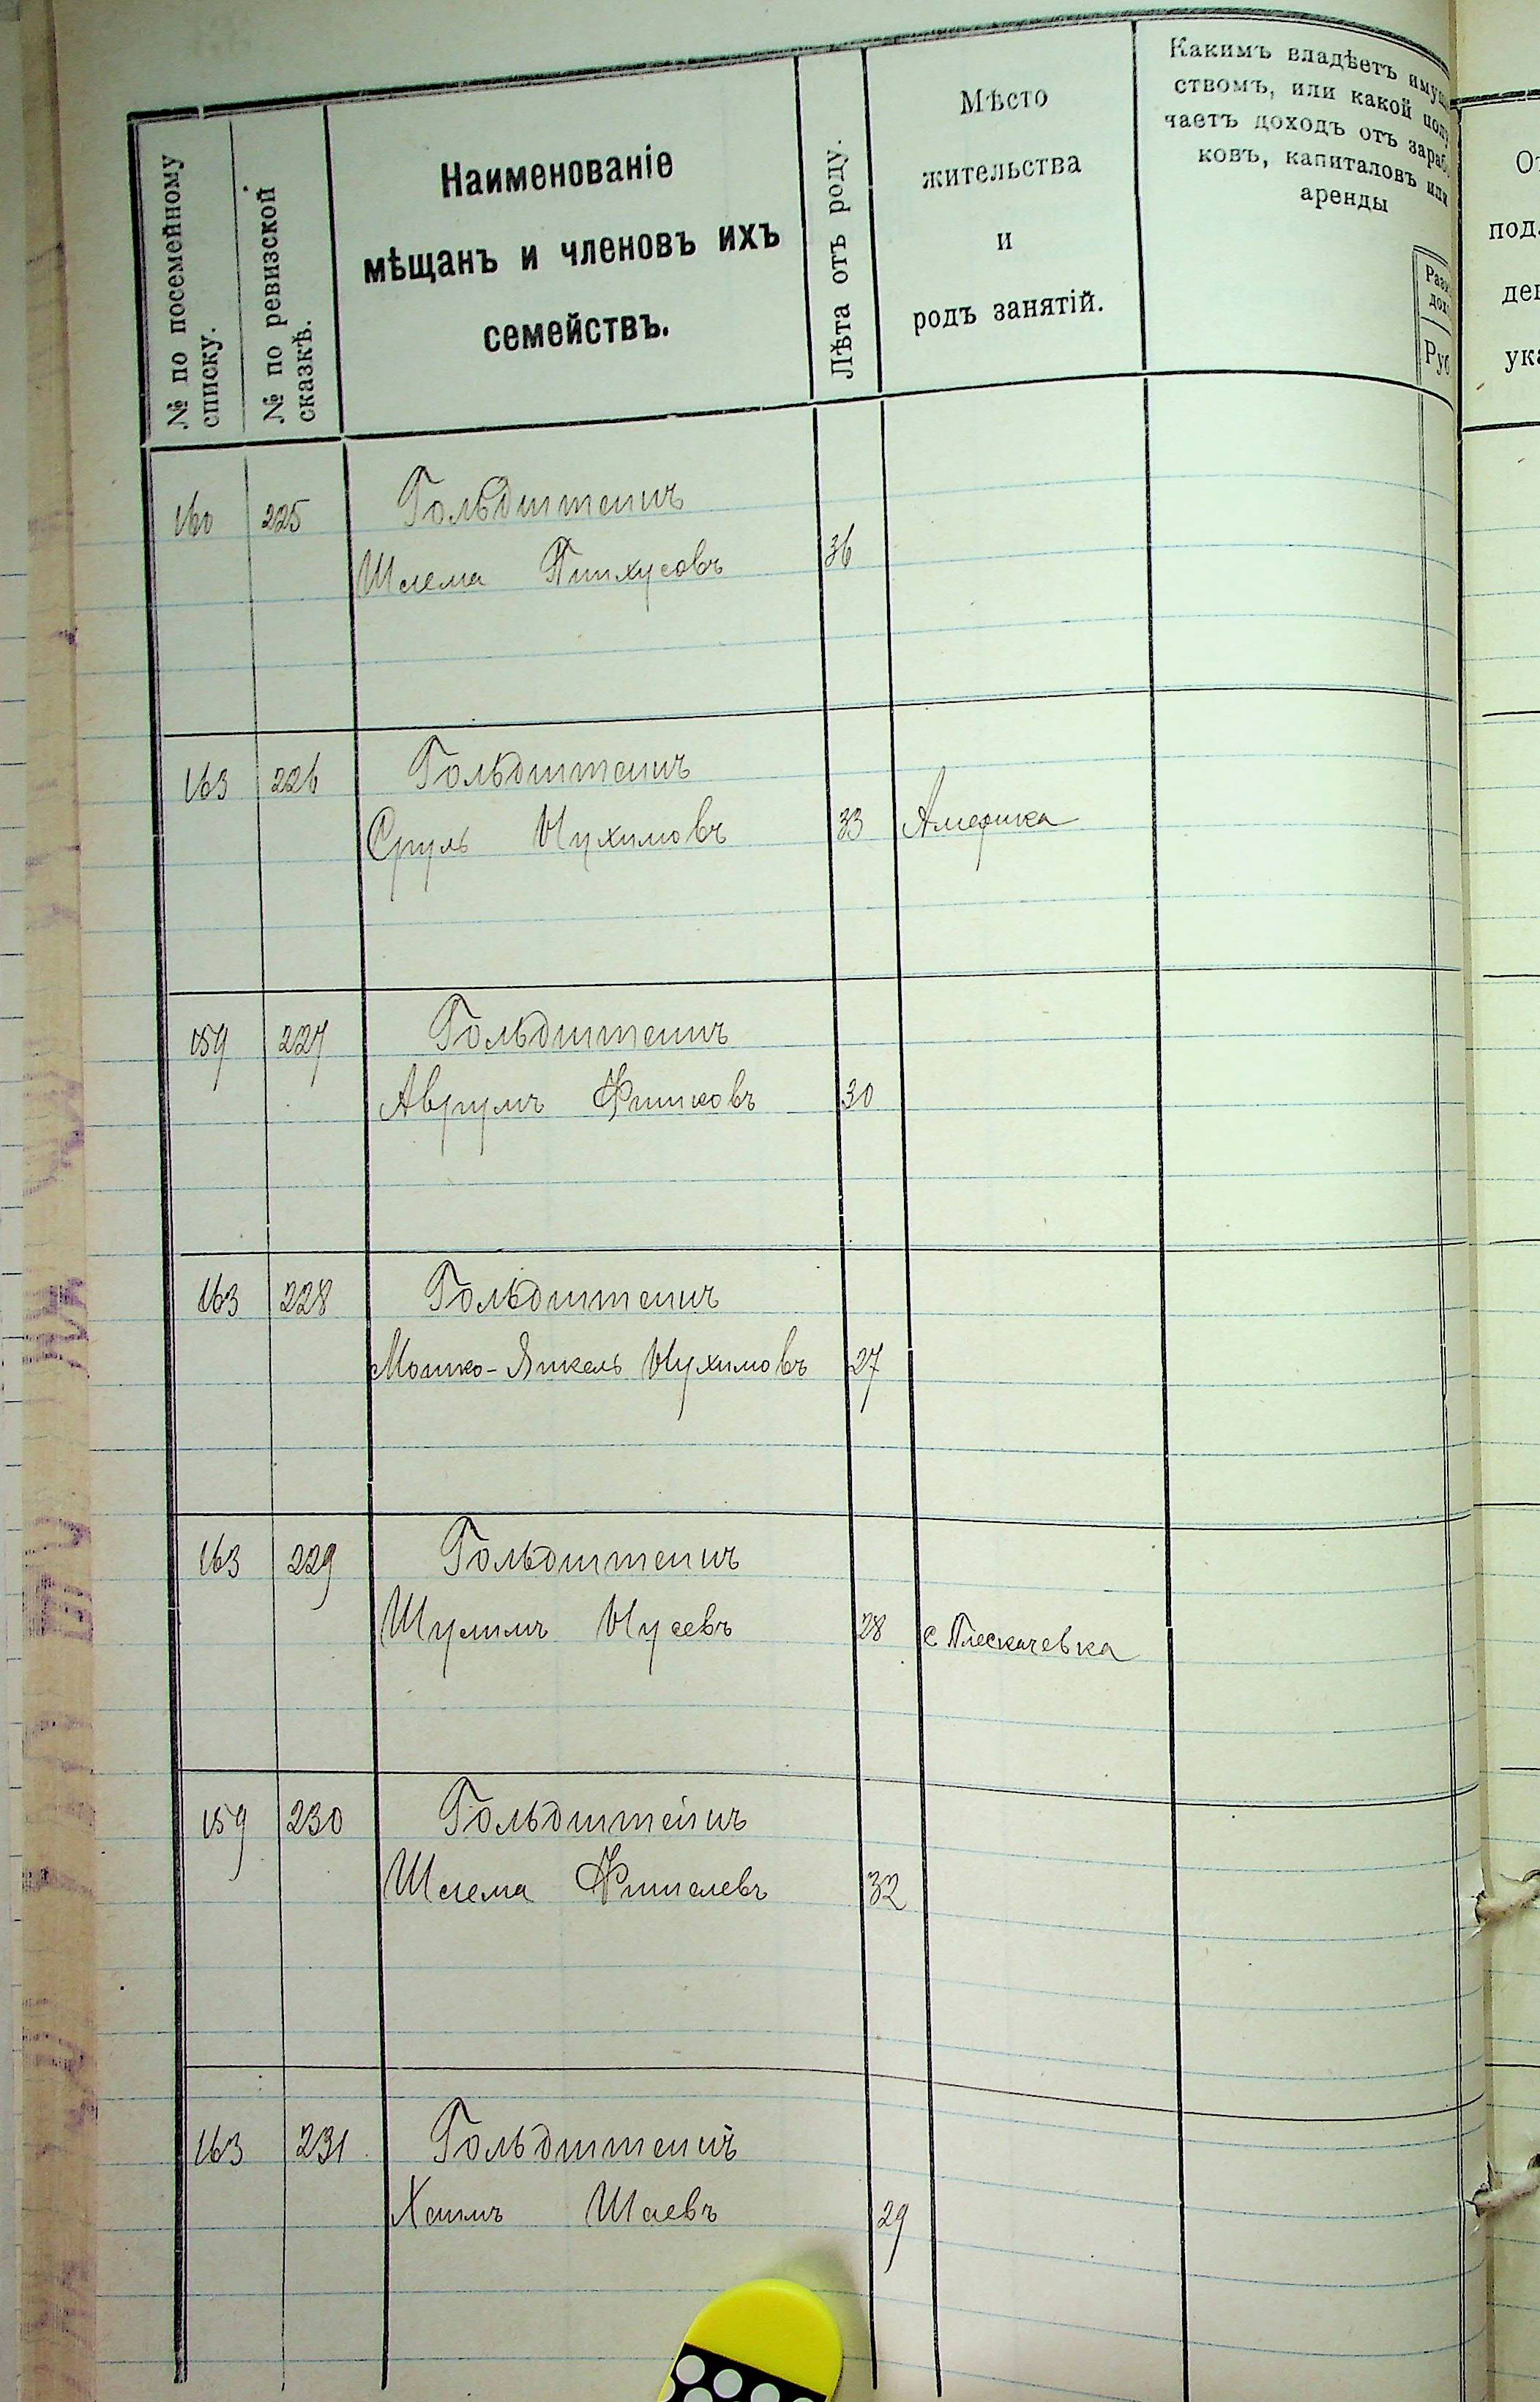 № по посемейному
списку.
№ по ревизской
сказкѣ.
Наименованіе
мѣщанъ и членовъ ихъ
семействъ.
Лѣта отъ роду.
Мѣсто
жительства
и
родъ занятій.
Какимъ владѣетъ имущ
ствомъ, или какой полу
чаетъ доходъ отъ зараб
ковъ, капиталовъ или
аренды
Руб
160 225 Гольдштейнъ
Шлема Пинхусовъ 36
163 226 Гольдштейнъ
Сруль Нухимовъ 33 Америка
159 227 Гольдштейнъ
Аврумъ Фишковъ 30
163 228 Гольдштейнъ
Мошко-Янкель Нухимовъ 27
163 229 Гольдштейнъ
Шулимъ Нусевъ 28 с Плескачевка
159 230 Гольдштейнъ
Шлема Фишелевъ 32
163 231 Гольдштейнъ
Хаимъ Шаевъ 29